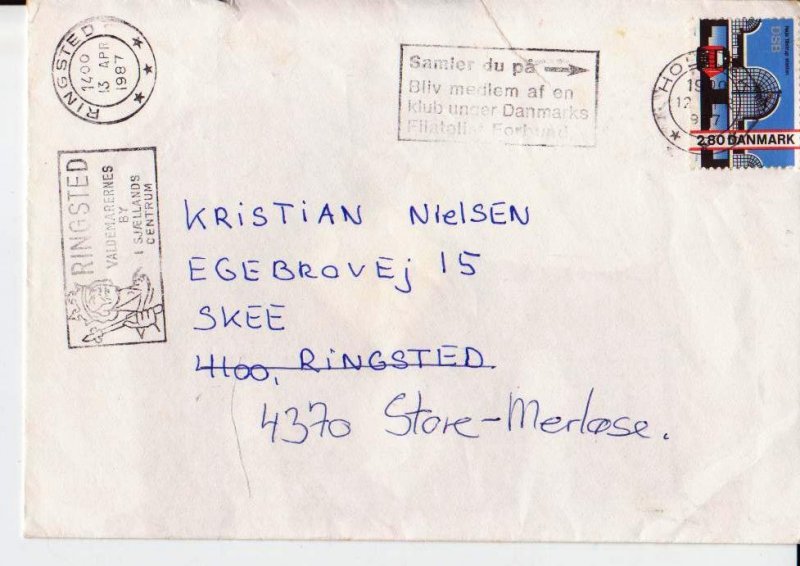 RINGSTED
1400
13 APR
1987
Samler du på
Bliv medlem af en
klub under Danmarks
Filatelist Forbund
DSB
12
2.80 DANMARK
RINGSTED
VALDEMARERNES
BY
I SJÆLLANDS
CENTRUM
KRiSTiAN NielSEN
EGEBROVEj 15
SKEE
4100, RiNGSTED.
4370 Store-Merløse.